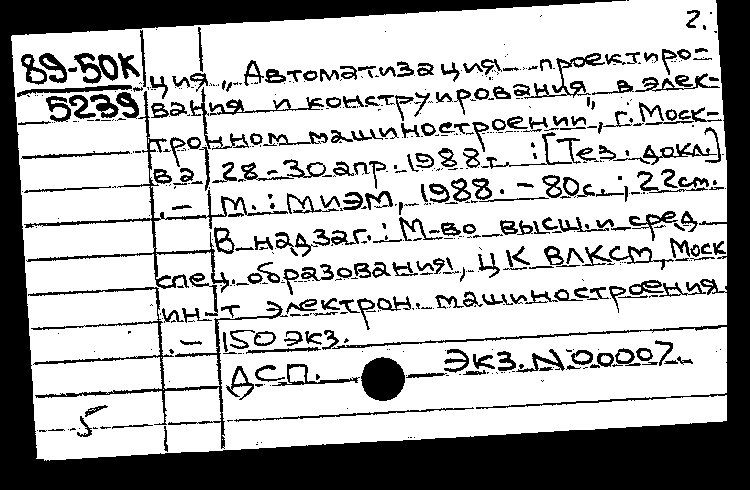 2.
89-50К
5239
ция „Автоматизация проектиро-
вания и конструирования в элек-
тронном машиностроении", г. Моск-
ва, 28-30 апр. 1988г. : [Тез. докл.]
.- М. : МИЭМ, 1988. - 80с. ; 22см.
В надзаг. : М-во высш. и сред.
спец. образования, ЦК ВЛКСМ, Моск
ин-т электрон. машиностроения.
.- 150 экз.
ДСП. Экз. N 00007.
5